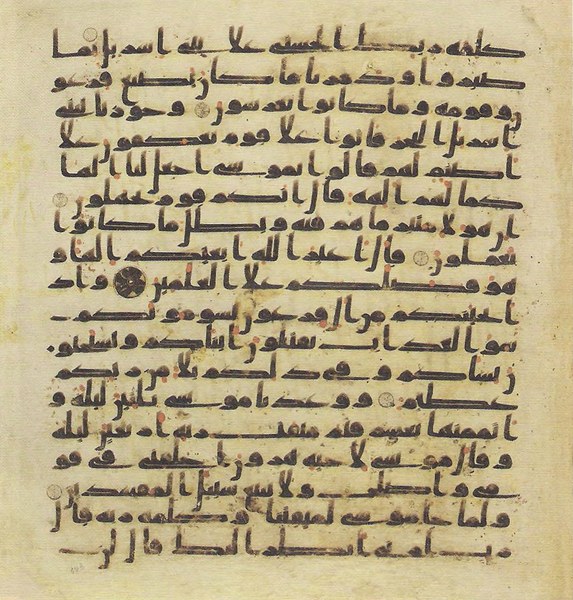 كلمه ربك الحسنى علا بني اسريل بما
صبروا ودمرنا ما كان يصنع فرعو
ن وقومه وما كانوا يعرشون وجوزنا ببني
اسريل البحر فاتوا علا قوم يعكفون علا
اصنم لهم قالوا يموسى اجعل لنا الها
كما لهم الهه قال انكم قوم تجهلون
ان هولا متبر ما هم فيه وبطل ما كانوا
يعملون قال اغير الله ابغيكم الها و
هو فضلكم علا العلمين واذ
انجينكم من ال فرعون يسومونكم
سو العذاب يقتلون ابناكم ويستحيو
ن نساكم وفي ذلكم بلا من ربكم
عظيم ووعدنا موسى ثلثين ليله و
اتممنها بعشر فتم ميقت ربه اربعين ليله
وقال موسى لاخيه هرون اخلفني في قو
مي واصلح ولا تتبع سبيل المفسدين
ولما جا موسى لميقتنا وكلمه ربه قال
رب ارني انظر اليك قال لن